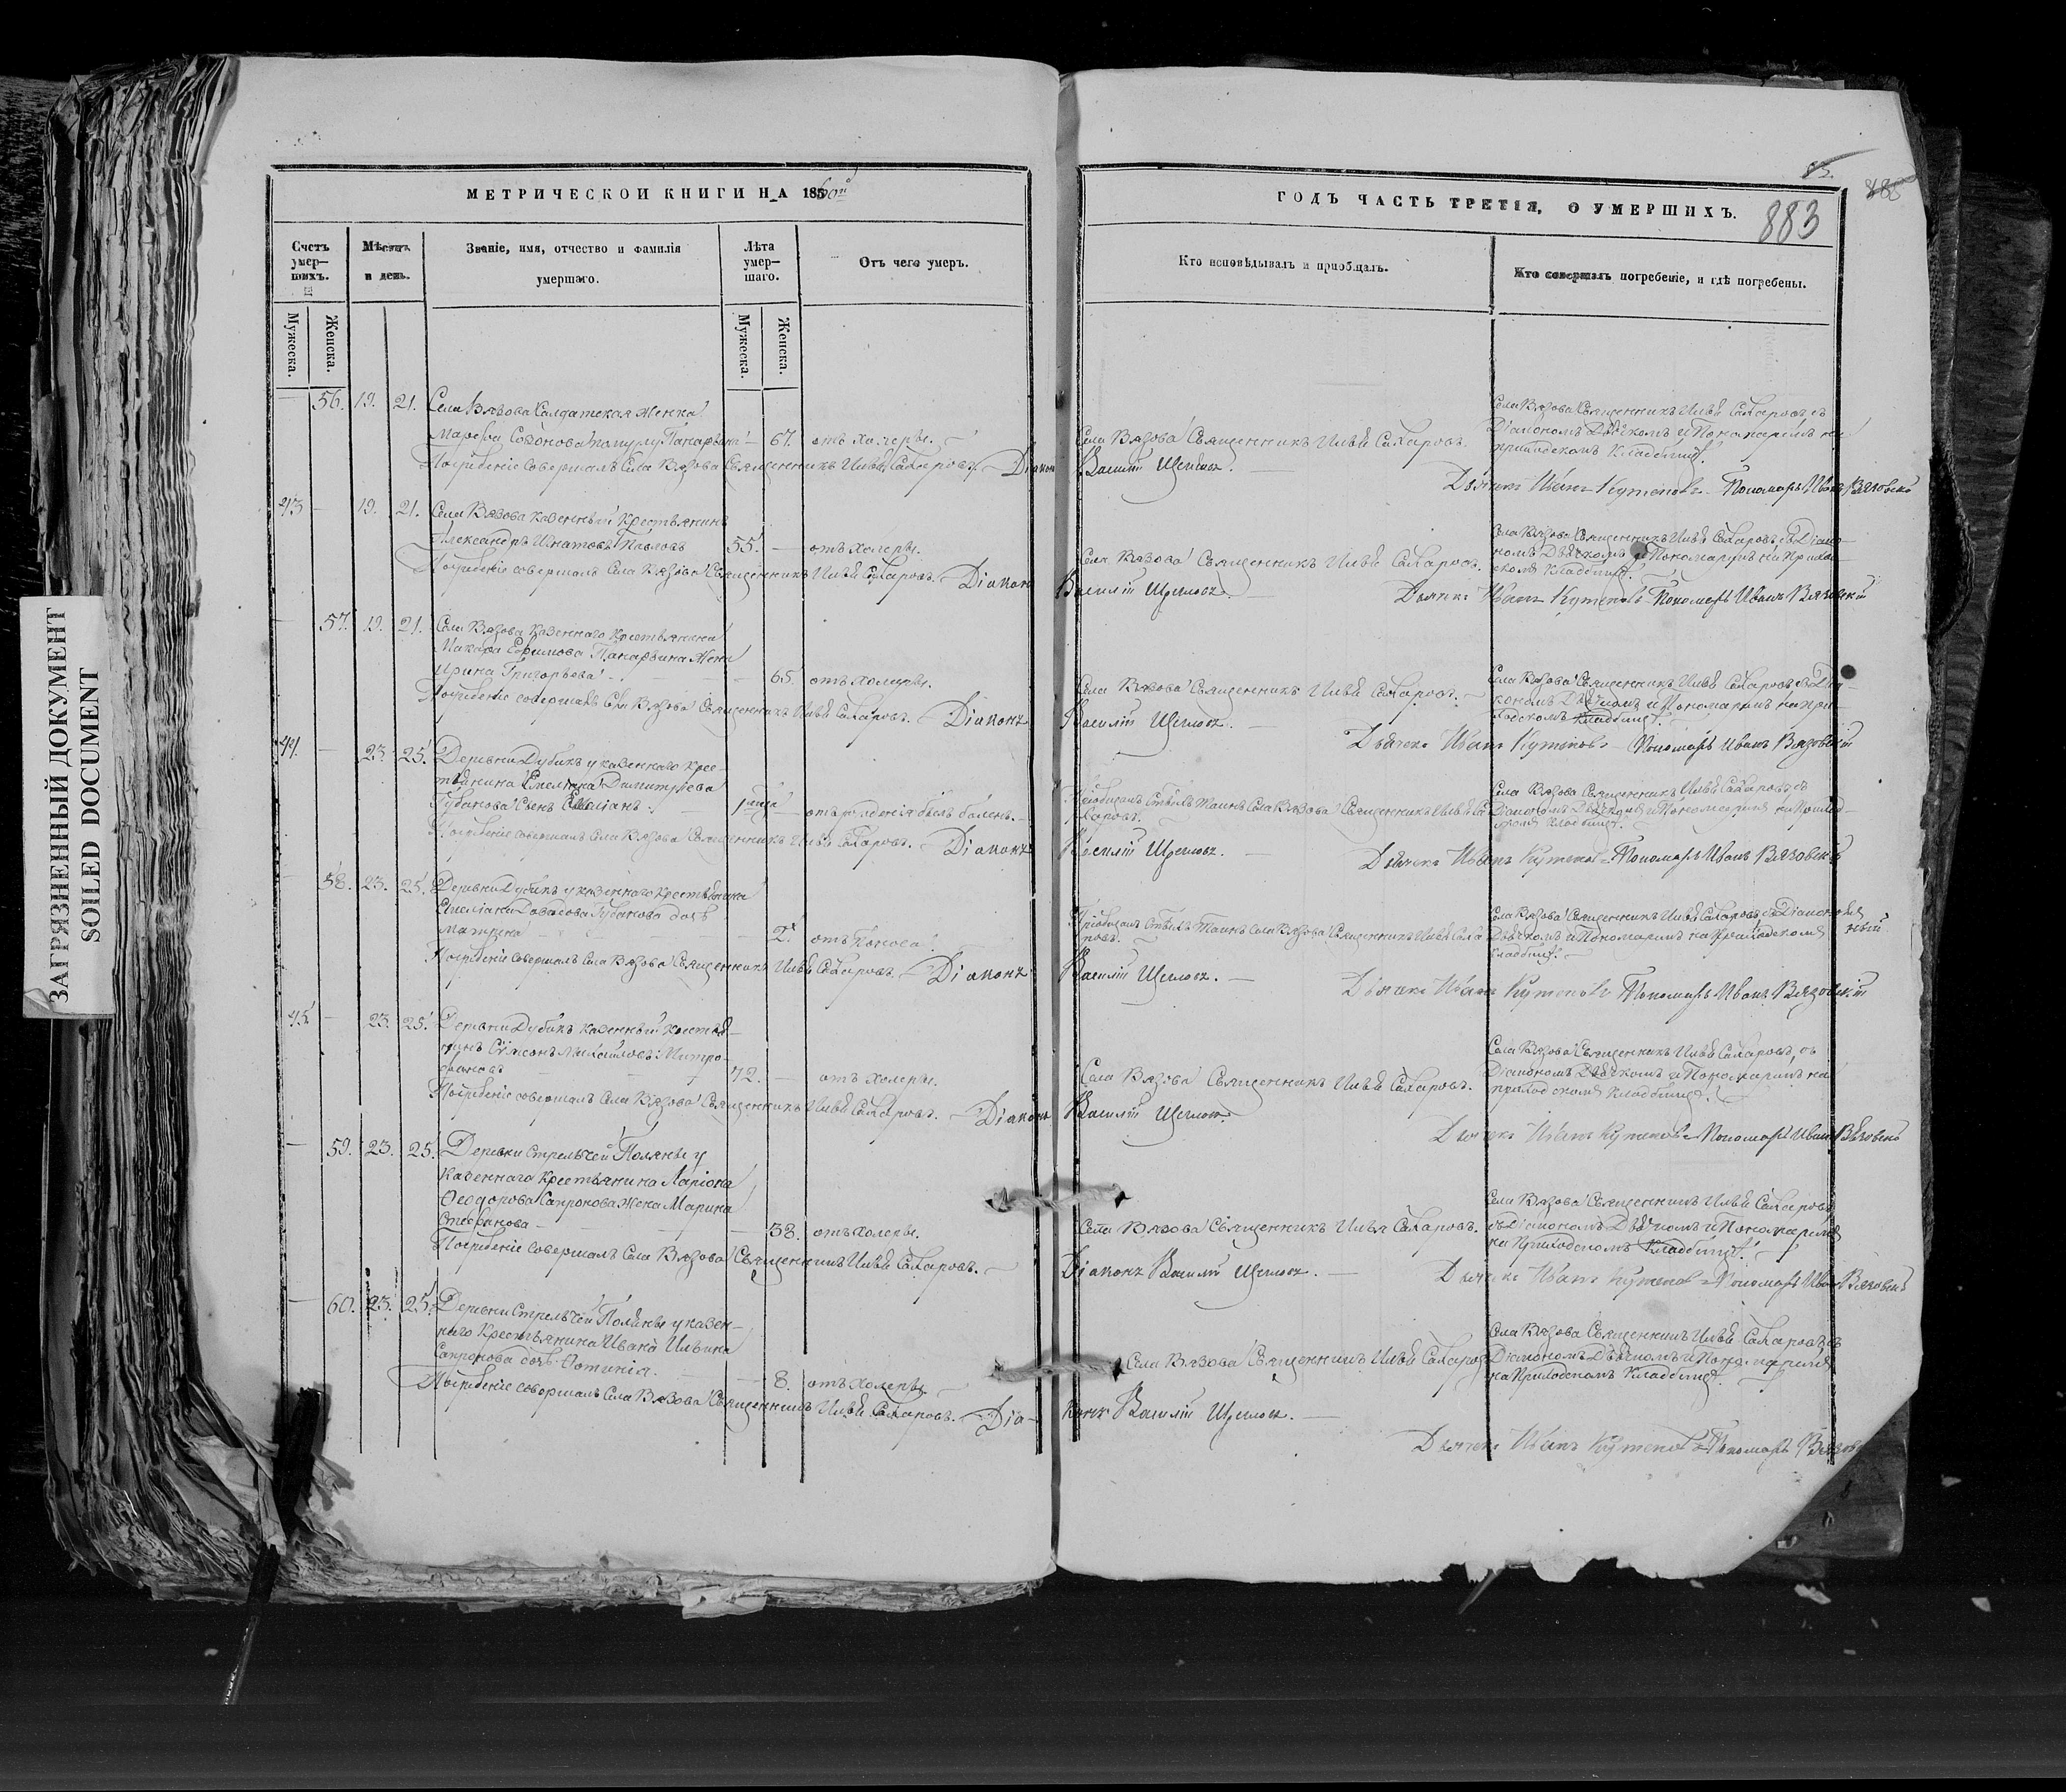 ЗАГРЯЗНЕННЫЙ ДОКУМЕНТ
SOILED DOCUMENT
МЕТРИЧЕСКОЙ КНИГИ НА 1860й
Счетъ умер—шихъ.
Мѣсяцъ и день.
Званіе, имя, отчество и фамилія умершаго.
Лѣта умер—шаго.
Отъ чего умеръ.
Мужеска.
Женска.
Мужеска.
Женска.
56. 19. 21. Села Вязова Салдатская Женка
67. отъ холеры.
Погребеніе совершалъ Села Вязова Священникъ Илья Сахаровъ. Діаконъ
43 19. 21. Села Вязова казенный Крестьянинъ
Александръ Игнатовъ Павловъ 55. отъ холеры.
Погребеніе совершалъ Села Вязова Священникъ Илья Сахаровъ. Діаконъ
57. 19. 21. Села Вязова Казеннаго Крестьянина
Макара Ефимова Панарьина Жена
Ирина Григорьева 65. отъ холеры.
Погребеніе совершалъ Села Вязова Священникъ Илья Сахаровъ. Діаконъ
44. 23. 25. Деревни Дубикъ у казеннаго крес—
тьянина Емеліана Димитріева
Губанова Сынъ отъ рожденія былъ боленъ.
Погребеніе совершалъ Села Вязова Священникъ Илья Сахаровъ. Діаконъ
58. 23. 25. Деревни Дубикъ у казеннаго Крестьянина
Емеліана Давыдова Губанова дочь
Матрена 2. отъ поноса.
Погребеніе совершалъ Села Вязова Священникъ Илья Сахаровъ. Діаконъ
45. 23. 25. Деревни Дубикъ казенный крестья—
нинъ Сѵмеонъ Михайловъ Митро—
фановъ 72. отъ холеры.
Погребеніе совершалъ Села Вязова Священникъ Илья Сахаровъ. Діаконъ
59. 23. 25. Деревни Стрельчей Поляны у
Казеннаго Крестьянина Ларіона
Ѳеодорова Сапронова Жена Марина
Стефанова 58. отъ холеры.
Погребеніе совершалъ Села Вязова Священникъ Илья Сахаровъ.
60. 23. 25. Деревни Стрельчей Поляны у казен—
наго Крестьянина Ивана Ильина
Сапронова дочь Фотинія. 8. отъ холеры.
Погребеніе совершалъ Села Вязова Священникъ Илья Сахаровъ. Діа—
ГОДЪ ЧАСТЬ ТРЕТІЯ, О УМЕРШИХЪ.
883
Кто исповѣдывалъ и пріобщалъ.
Кто совершалъ погребеніе, и гдѣ погребены.
Села Вязова Священникъ Илья Сахаровъ съ
Діакономъ Дьячкомъ и Пономаремъ на
приходскомъ Кладбищѣ.
Села Вязова Священникъ Илья Сахаровъ.
Василій Щегловъ.
Дьячекъ Иванъ Кутеповъ Пономарь Иванъ Вязовскій
Села Вязова Священникъ Илья Сахаровъ съ Діако—
номъ Дьячкомъ и Пономаремъ на Приход—
скомъ Кладбищѣ.
Села Вязова Священникъ Илья Сахаровъ.
Василій Щегловъ.
Дьячекъ Иванъ Кутеповъ Пономарь Иванъ Вязовскій
Села Вязова Священникъ Илья Сахаровъ съ Діа—
кономъ Дьячкомъ и Пономаремъ на при—
ходскомъ Кладбищѣ.
Села Вязова Священникъ Илья Сахаровъ.
Василій Щегловъ.
Дьячекъ Иванъ Кутеповъ Пономарь Иванъ Вязовскій
Села Вязова Священникъ Илья Сахаровъ съ
Діакономъ Дьячкомъ и Пономаремъ на Приход—
скомъ Кладбищѣ.
Пріобщалъ Святыхъ Таинъ Села Вязова Священникъ Илья Са
харовъ.
Василій Щегловъ.
Дьячекъ Иванъ Кутеповъ Пономарь Иванъ Вязовскій
Села Вязова Священникъ Илья Сахаровъ съ Діакономъ
Дьячкомъ и Пономаремъ на Приходскомъ
Кладбищѣ.
Пріобщалъ Святыхъ Таинъ Села Вязова Священникъ Илья Саха
ровъ.
Василій Щегловъ.
Дьячекъ Иванъ Кутеповъ Пономарь Иванъ Вязовскій
Села Вязова Священникъ Илья Сахаровъ, съ
Діакономъ Дьячкомъ и Пономаремъ на
приходскомъ Кладбищѣ.
Села Вязова Священникъ Илья Сахаровъ.
Василій Щегловъ.
Дьячекъ Иванъ Кутеповъ Пономарь Иванъ Вязовскій
Села Вязова Священникъ Илья Сахаровъ
съ Діакономъ Дьячкомъ и Пономаремъ
на Приходскомъ Кладбищѣ.
Села Вязова Священникъ Илья Сахаровъ.
Діаконъ Василій Щегловъ.
Дьячекъ Иванъ Кутеповъ Пономарь Иванъ Вязовскій
Села Вязова Священникъ Илья Сахаровъ съ
Діакономъ Дьячкомъ и Пономаремъ
на Приходскомъ Кладбищѣ.
Села Вязова Священникъ Илья Сахаровъ
конъ Василій Щегловъ.
Дьячекъ Иванъ Кутеповъ Пономарь